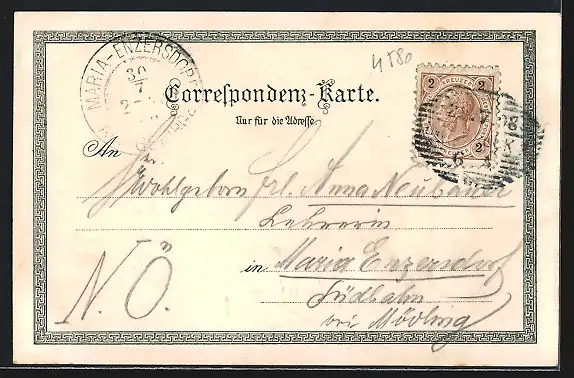 4580
MARIA-ENZERSDORF
30
7
2
Correspondenz-Karte.
Nur für die Adresse.
2 KREUZER 2
2
98
6
An
Wohlgeboren Frl. Anna Neubauer
Lehrerin
in Maria Enzersdorf
Südbahn
bei Mödling
N.Ö